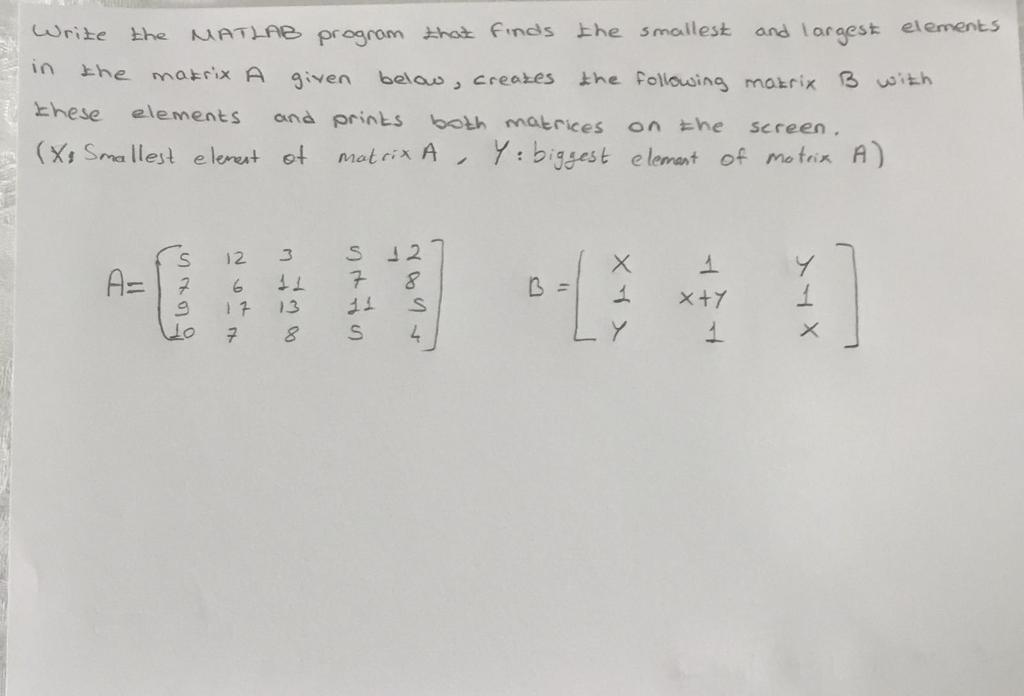 Write the MATLAB program that finds the smallest and largest elements
in the matrix A given below, creates the following matrix B with
these elements and prints both matrices on the screen.
(X: Smallest element of matrix A, Y: biggest element of matrix A)
A= [ 5 12 3 5 12
7 6 11 7 8
9 17 13 11 5
10 7 8 5 4 ]
B = [ X 1 Y
1 X+Y 1
Y 1 X ]